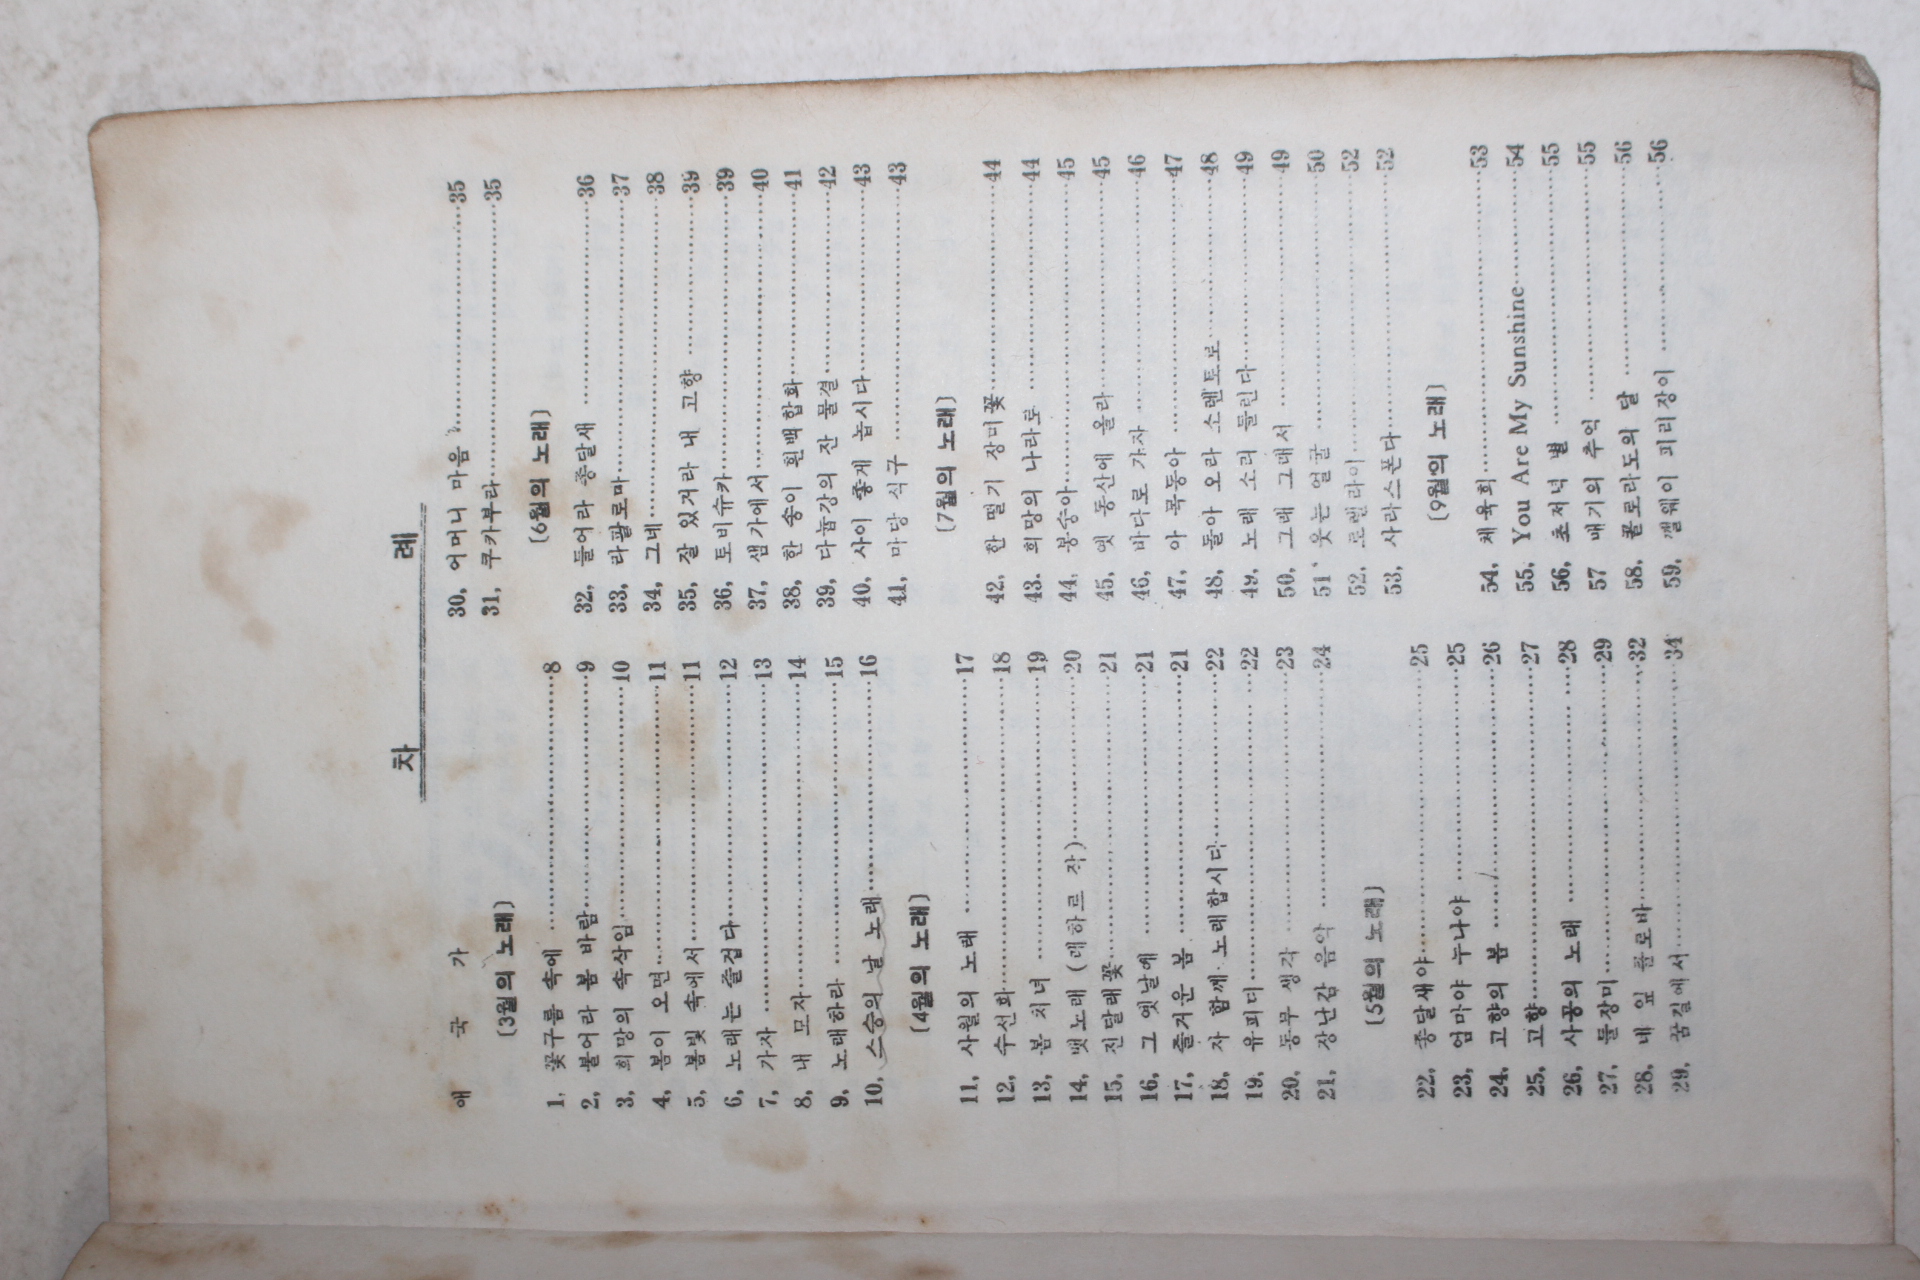 차 례
애 국 가
(3월의 노래)
1, 꽃구름 속에 ……………8
2, 불어라 봄 바람……………9
3, 희망의 속삭임……………10
4, 봄이 오면……………11
5, 봄빛 속에서……………11
6, 노래는 즐겁다……………12
7, 가자……………13
8, 내 모자……………14
9, 노래하라……………15
10, 스승의 날 노래……………16
(4월의 노래)
11, 사월의 노래……………17
12, 수선화……………18
13, 봄 처녀……………19
14, 뱃노래 (레하르 작)……………20
15, 진달래꽃……………21
16, 그 옛날에……………21
17, 즐거운 봄……………21
18, 자 함께 노래합시다……………22
19, 유피디……………22
20, 동무 생각……………23
21, 장난감 음악……………24
(5월의 노래)
22, 종달새야……………25
23, 엄마야 누나야……………25
24, 고향의 봄……………26
25, 고향……………27
26, 사공의 노래……………28
27, 들장미……………29
28, 네 잎 클로바……………32
29, 꿈길에서……………34
30, 어머니 마음……………35
31, 쿠카부라……………35
(6월의 노래)
32, 들어라 종달새……………36
33, 라팔로마……………37
34, 그네……………38
35, 잘 있거라 내 고향……………39
36, 토비슈카……………39
37, 샘가에서……………40
38, 한 송이 흰백합화……………41
39, 다뉴강의 잔 물결……………42
40, 사이 좋게 놉시다……………43
41, 마당 식구……………43
(7월의 노래)
42, 한 떨기 장미꽃……………44
43. 희망의 나라로……………44
44, 봉숭아……………45
45, 옛 동산에 올라……………45
46, 바다로 가자……………46
47, 아 목동아……………47
48, 돌아 오라 소렌토로……………48
49, 노래 소리 들린다……………49
50, 그래 그래서……………49
51, 웃는 얼굴……………50
52, 로렐라이……………52
53, 사라스폰다……………52
(9월의 노래)
54, 체육회……………53
55, You Are My Sunshine……………54
56, 초저녁 별……………55
57 매기의 추억……………55
58, 콜로라도의 달……………56
59, 껠웨이 피리장이……………56